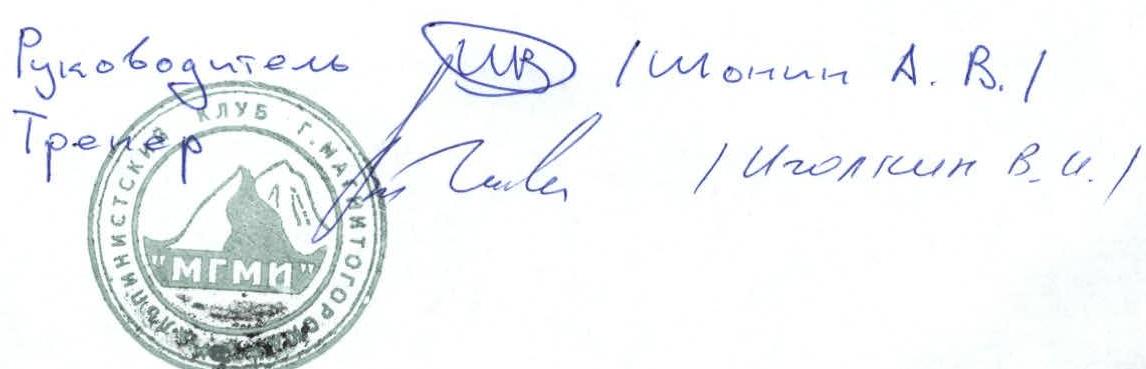 Руководитель /Шонин А. В./
Тренер /Иголкин В. И./
АЛЬПИНИСТСКИЙ КЛУБ Г. МАГНИТОГОРСК
"МГМИ"